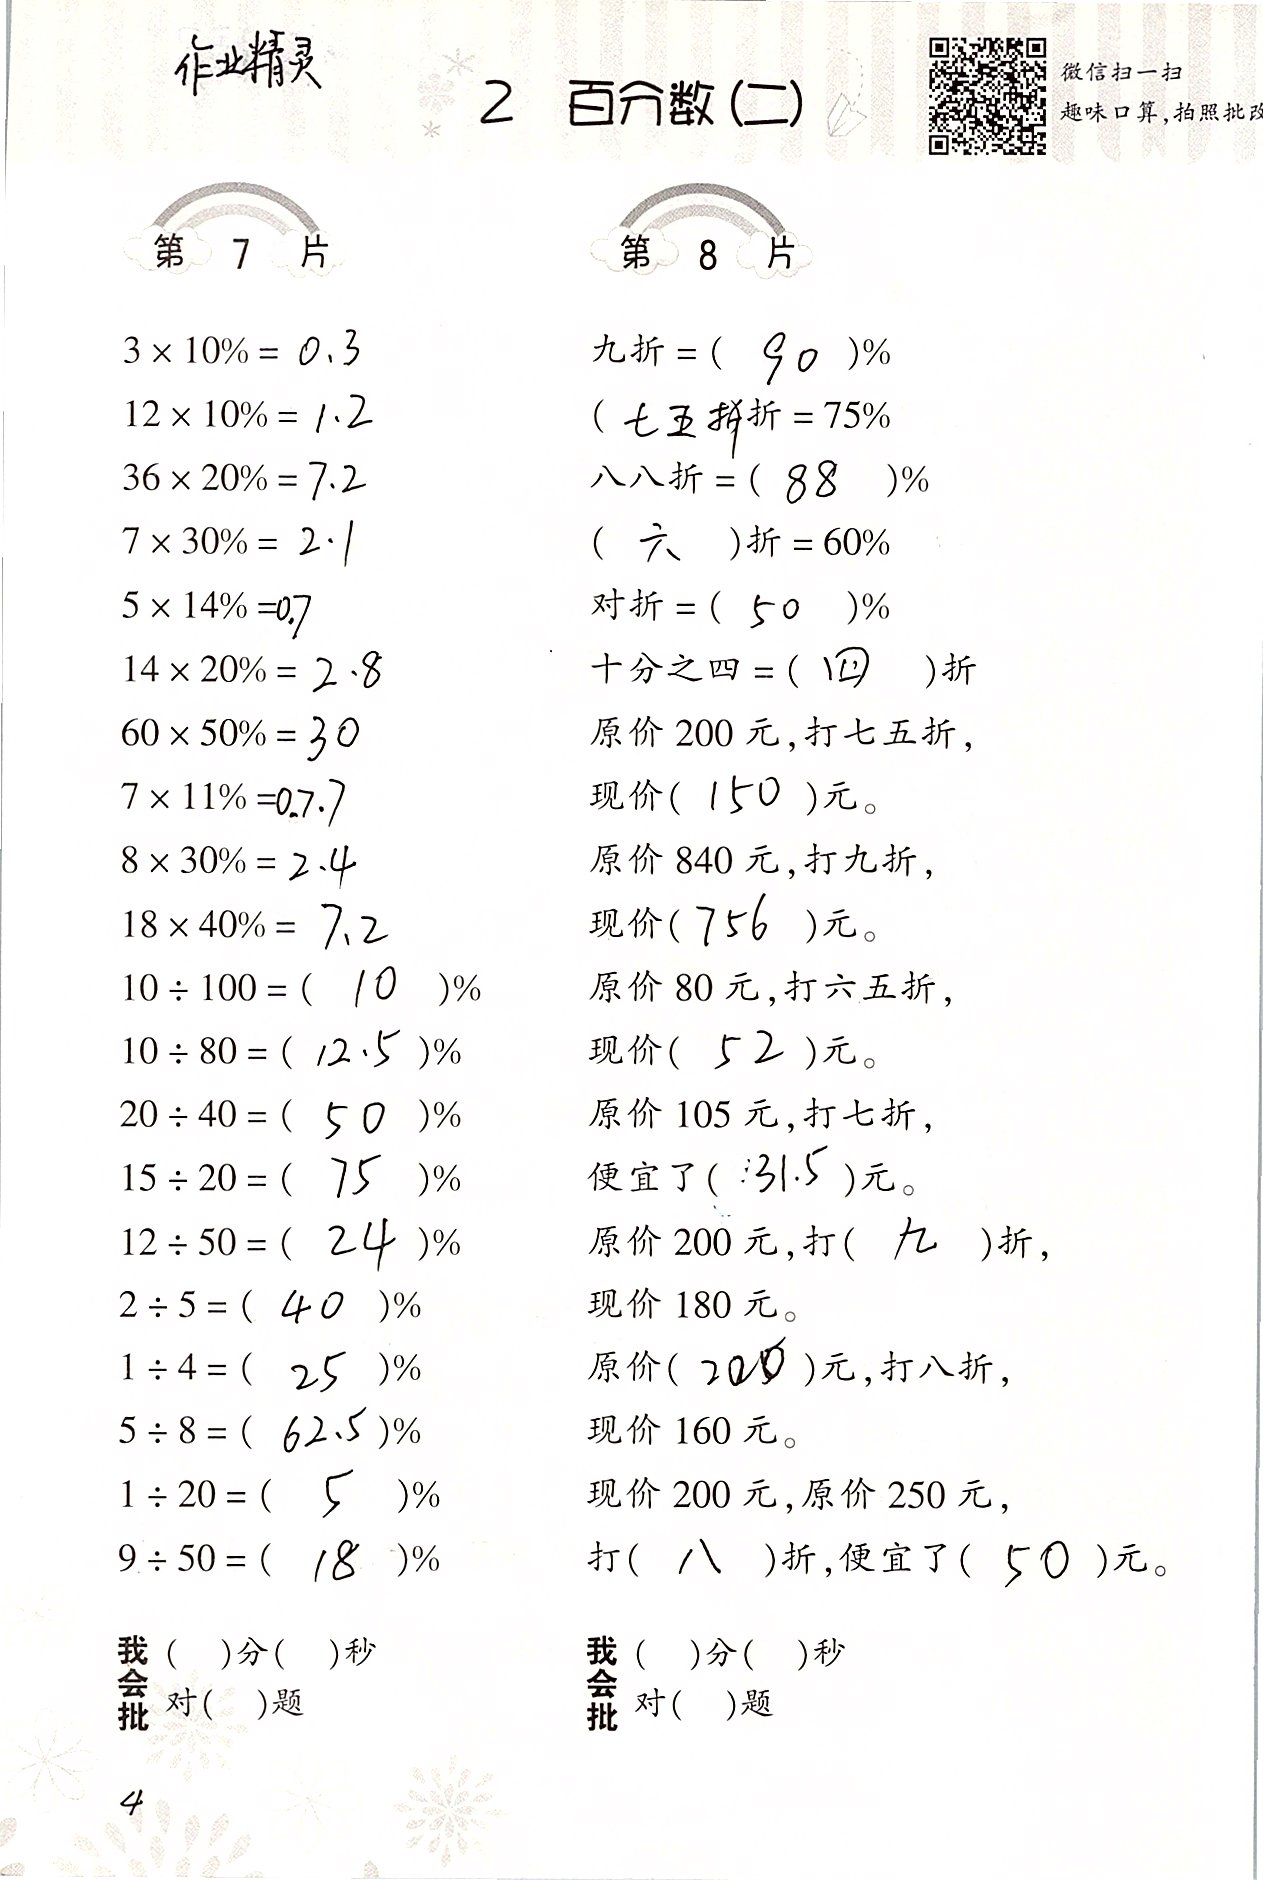 作业精灵
2 百分数(二)
微信扫一扫
趣味口算,拍照批改
第 7 片
3 × 10% = 0.3
12 × 10% = 1.2
36 × 20% = 7.2
7 × 30% = 2.1
5 × 14% = 0.7
14 × 20% = 2.8
60 × 50% = 30
7 × 11% = 0.7.7
8 × 30% = 2.4
18 × 40% = 7.2
10 ÷ 100 = ( 10 )%
10 ÷ 80 = ( 12.5 )%
20 ÷ 40 = ( 50 )%
15 ÷ 20 = ( 75 )%
12 ÷ 50 = ( 24 )%
2 ÷ 5 = ( 40 )%
1 ÷ 4 = ( 25 )%
5 ÷ 8 = ( 62.5 )%
1 ÷ 20 = ( 5 )%
9 ÷ 50 = ( 18 )%
我会批
( )分( )秒
对( )题
第 8 片
九折 = ( 90 )%
( 七五折折 = 75%
八八折 = ( 88 )%
( 六 )折 = 60%
对折 = ( 50 )%
十分之四 = ( 四 )折
原价 200 元,打七五折,
现价( 150 )元。
原价 840 元,打九折,
现价( 756 )元。
原价 80 元,打六五折,
现价( 52 )元。
原价 105 元,打七折,
便宜了( 31.5 )元。
原价 200 元,打( 九 )折,
现价 180 元。
原价( 200 )元,打八折,
现价 160 元。
现价 200 元,原价 250 元,
打( 八 )折,便宜了( 50 )元。
我会批
( )分( )秒
对( )题
4